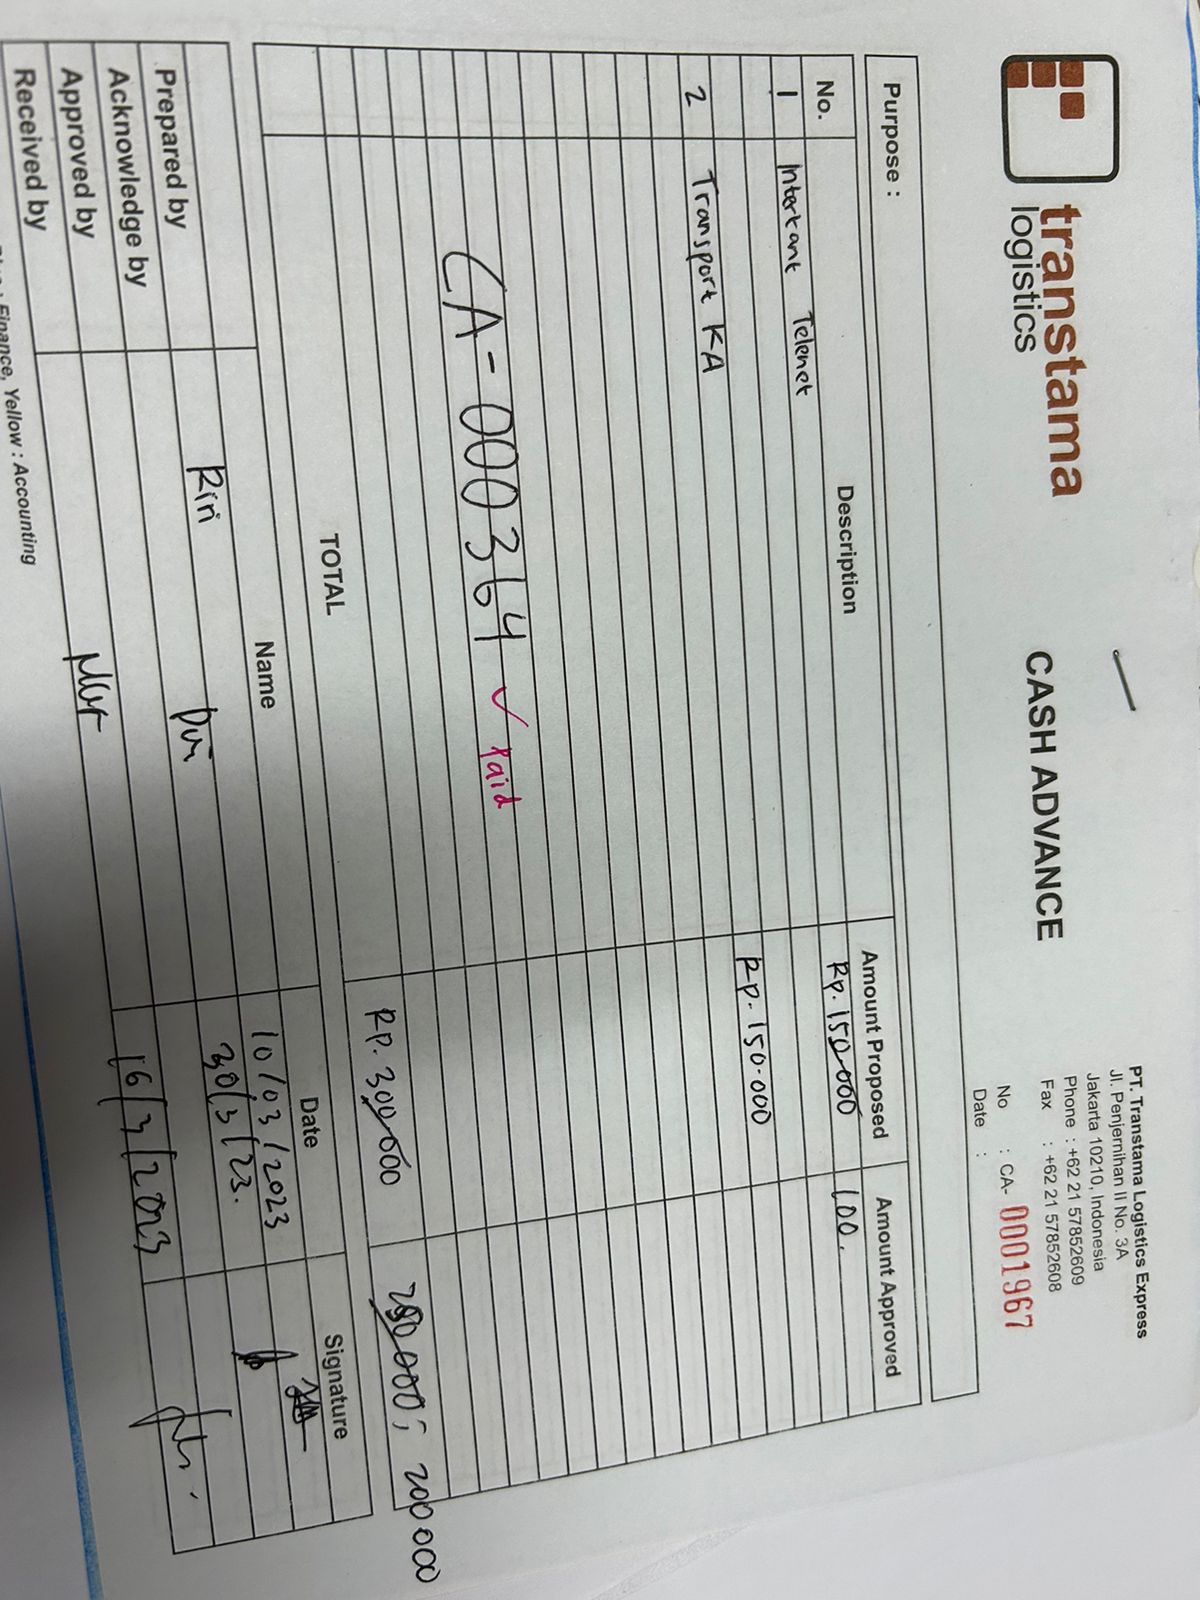 transtama
logistics
CASH ADVANCE
PT. Transtama Logistics Express
Jl. Penjernihan II No. 3A
Jakarta 10210, Indonesia
Phone : +62 21 57852609
Fax : +62 21 57852608
No : CA- 0001967
Date :
Purpose :
No. Description Amount Proposed Amount Approved
1 Intertant Telenet Rp. 150.000 100.
2 Transport KA Rp. 150.000
CA-000364 ✓ Paid
TOTAL Rp. 300.000 200 000
Name Date Signature
Prepared by Riri 10/03/2023
Acknowledge by 30/3/23.
Approved by 16/3/2023
Received by
Finance, Yellow : Accounting